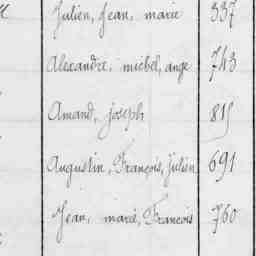 Julien, Jean, marie 337
Alexandre, michel, ange 743
Amand, joseph 815
Augustin, François, Julien 691
Jean, marie, François 760